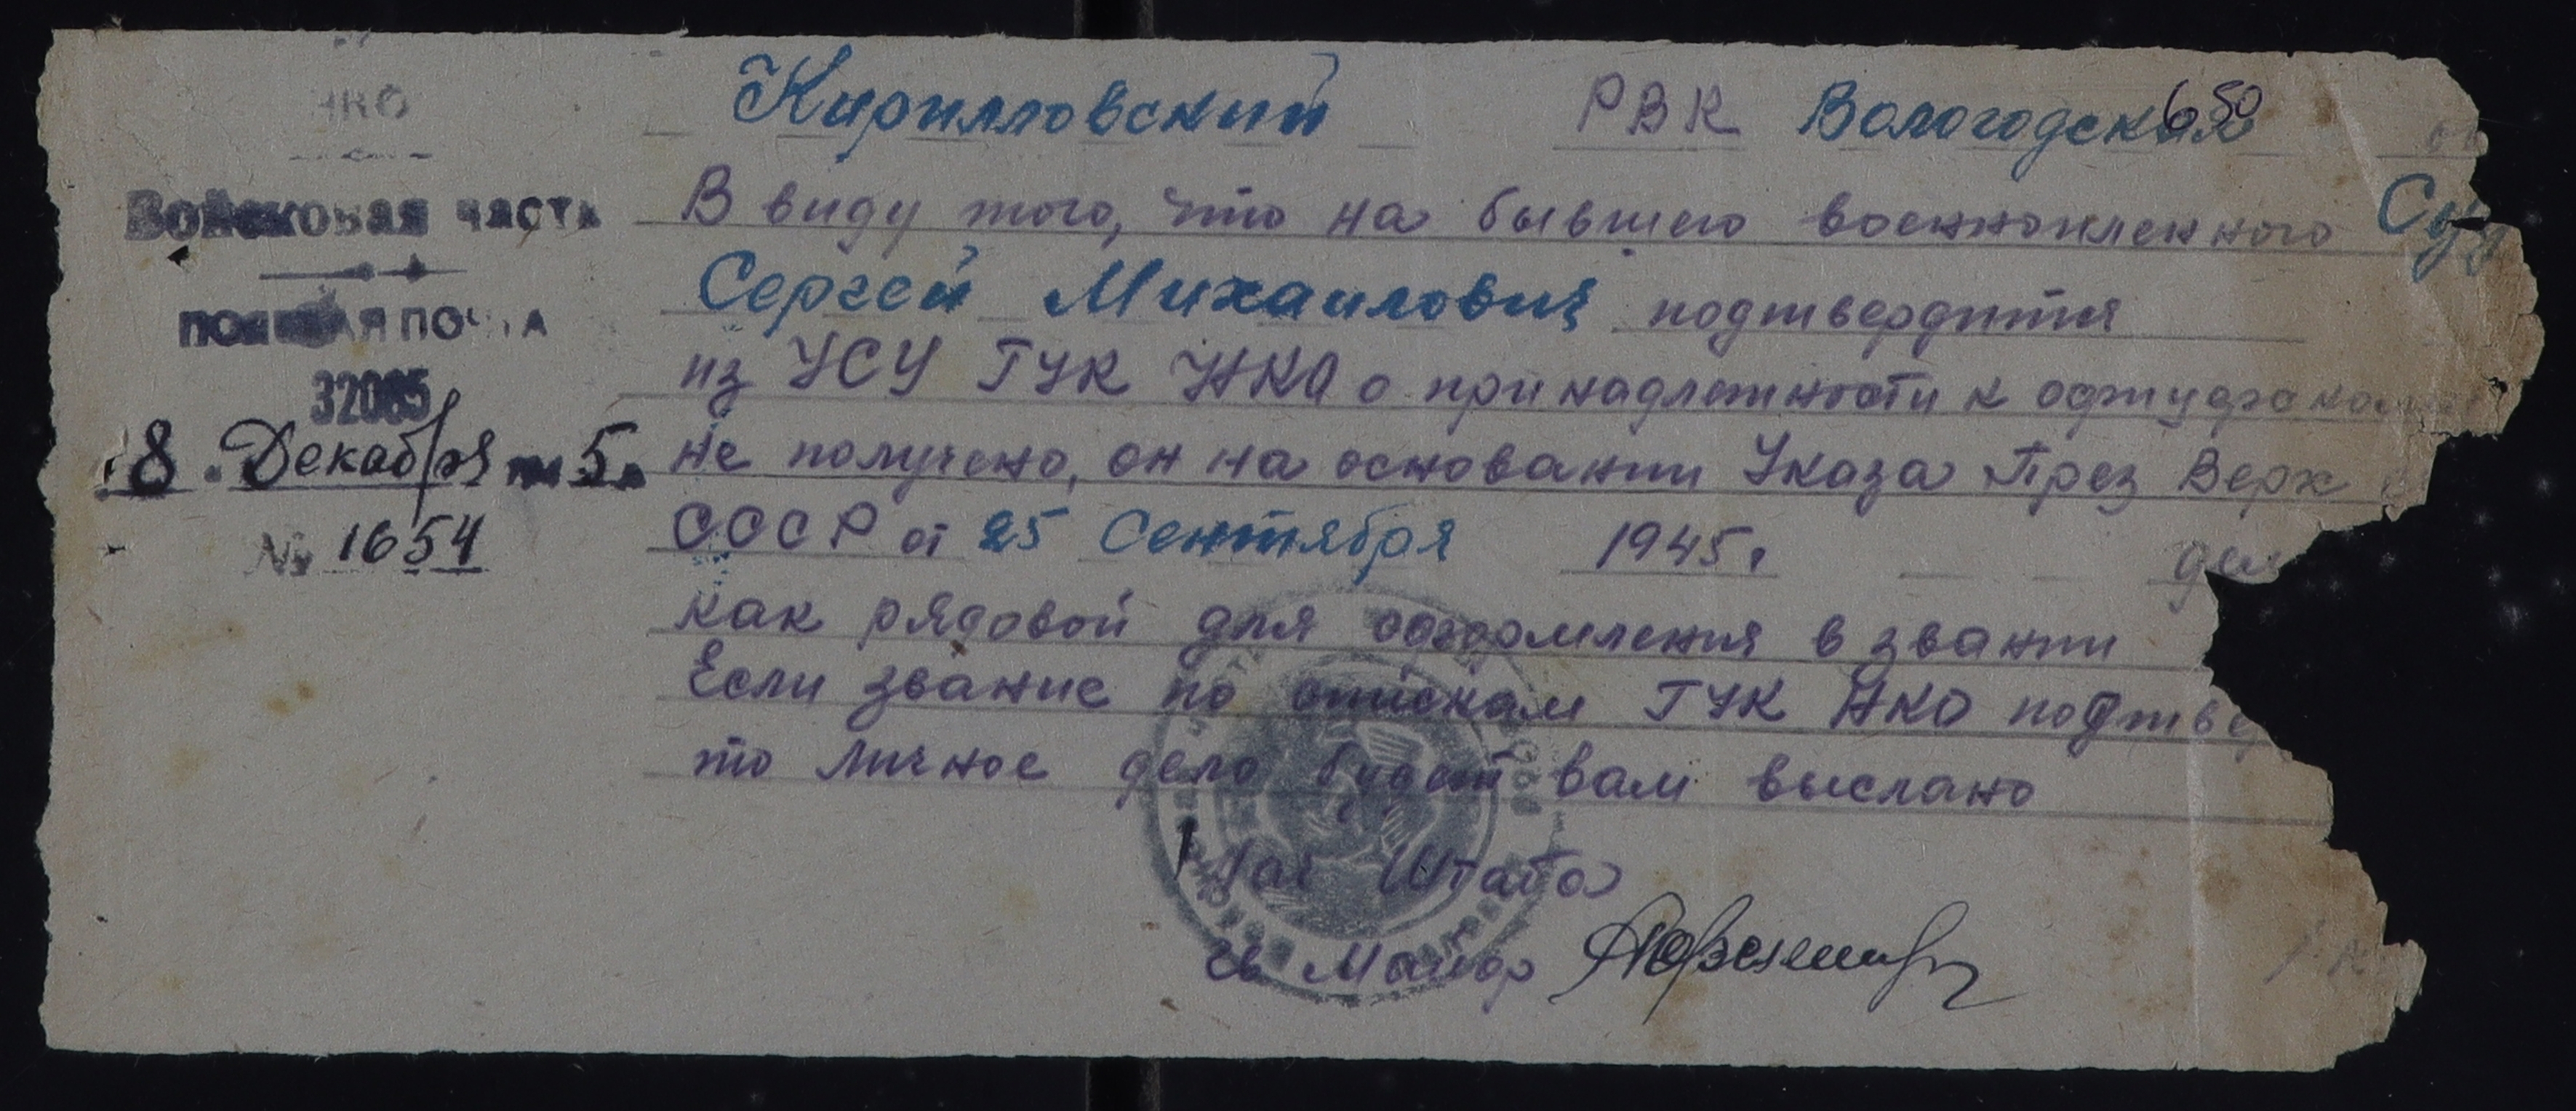 НКО
Войсковая часть
ПОЛЕВАЯ ПОЧТА
32085
8 Декабря 5
№ 1654
Кирилловский РВК Вологодская
650
В виду того, что на бывшего военнопленного Су
Сергей Михаилович подтвердится
из УСУ ГУК НКО о принадлежности к
не получено, он на основании Указа През Верх
СССР от 25 Сентября 1945г.
как рядовой для оформления в звании
Если звание по спискам ГУК НКО подтве
то личное дело будет вам выслано
Нач Штаба
Гв Майор